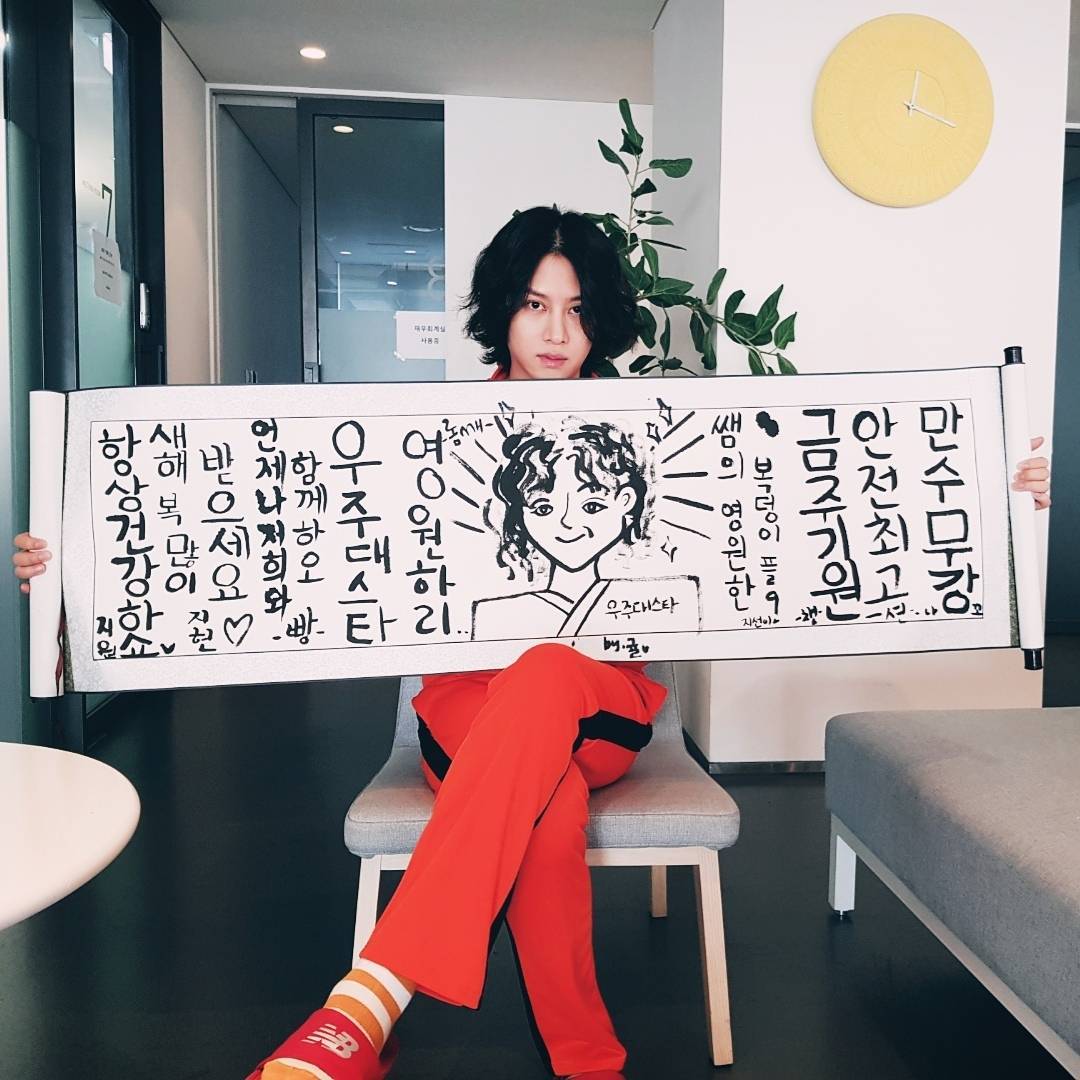 재무회계실
사용중
항상건강하쇼
지원
새해 복 많이
받으세요
지현♡
언제나저희와
함께하오
-빵-
우주대스타
영원하리..
우주대스타
by.귤♥
쌤의 영원한
복덩이 플9
지선이
금주기원
-챙-
안전최고
만수무강
꼬